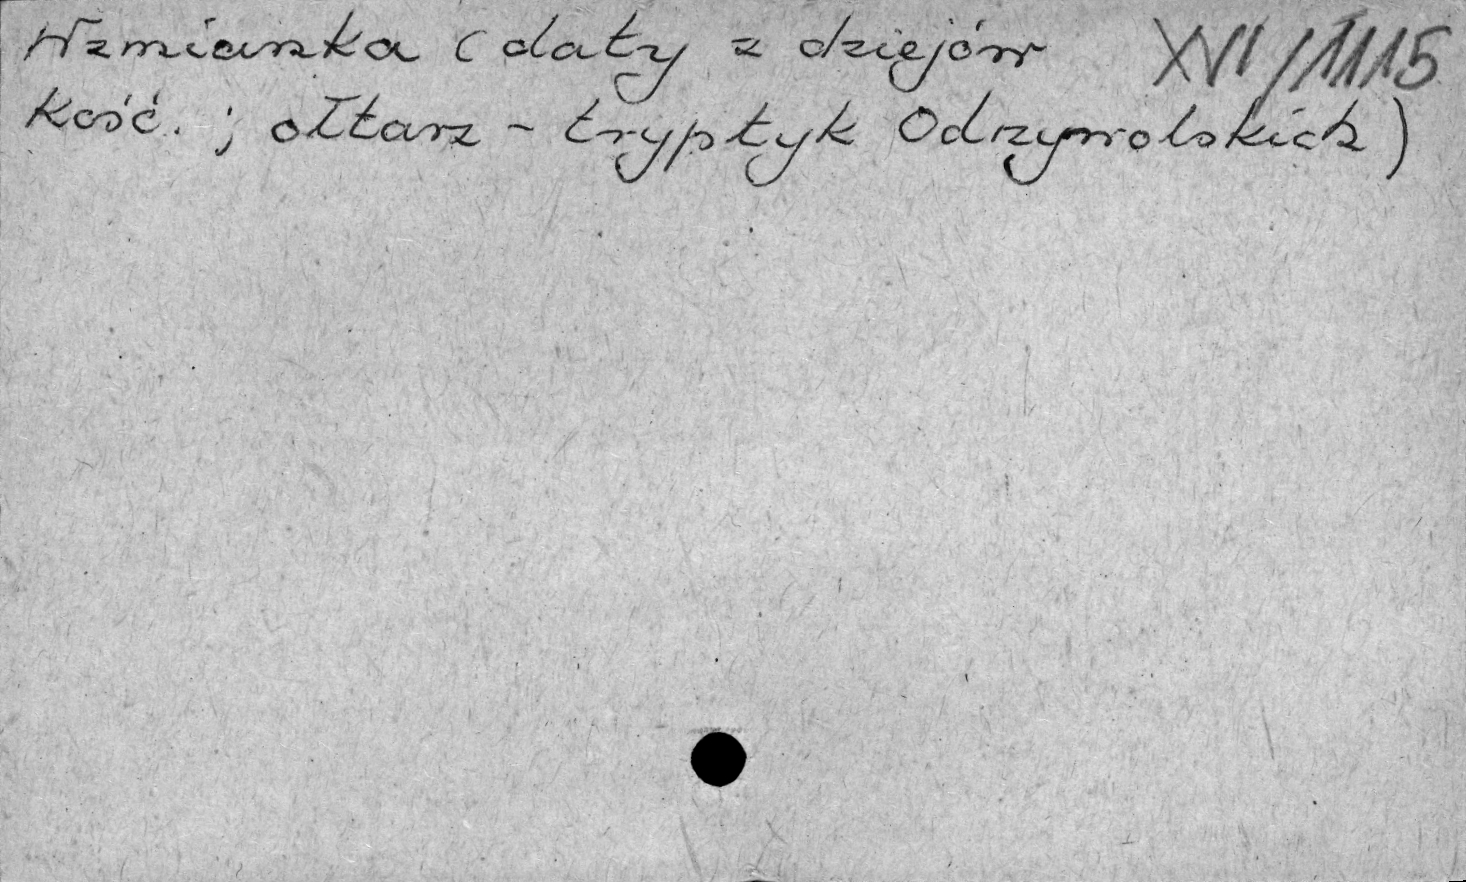 Wzmianka (daty z dziejów XVI/1115
kość. ; ołtarz - tryptyk Odrzywolskich)